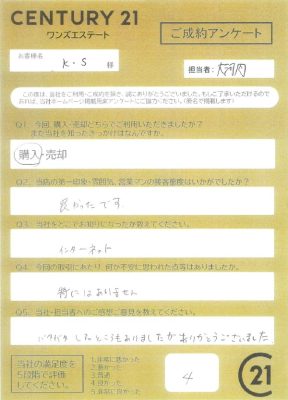 CENTURY 21
ワンズエステート
ご成約アンケート
お客様名
K.S 様
担当者: 大河内
この度は、当社をご利用・ご成約を頂き、誠にありがとうございました。もしご了承いただけるので
あれば、当社ホームページ掲載用楽アンケートにご協力ください。(匿名で掲載します)
Q1. 今回、購入・売却どちらでご利用いただきましたか?
また当社を知ったきっかけはなんですか。
購入・売却
Q2. 当店の第一印象・雰囲気、営業マンの接客態度はいかがでしたか?
良かったです
Q3. 当社をどこでお知りになったか教えてください。
インターネット
Q4. 今回の取引にあたり、何か不安に思われた点等はありましたか。
特にはありません
Q5. 当社・担当者へのご感想ご意見を教えてください。
バタバタしたところもありましたがありがとうございました
当社の満足度を
5段階で評価
してください。
1.非常に悪かった
2.悪かった
3.普通
4.良かった
5.非常に良かった
4
C21